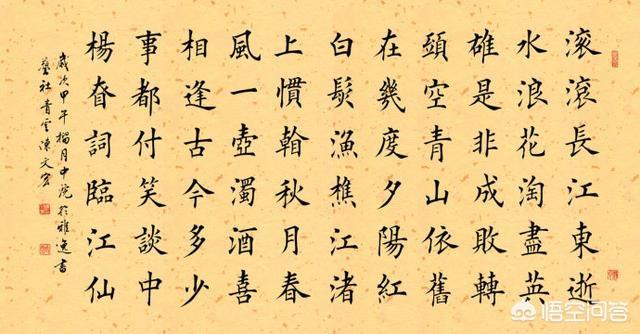 滾滾長江東逝
水浪花淘盡英
雄是非成敗轉
頭空青山依舊
在幾度夕陽紅
白髮漁樵江渚
上慣看秋月春
風一壺濁酒喜
相逢古今多少
事都付笑談中
楊昚詞臨江仙
歲次甲午榴月中浣於雅逸書
藝社青雲陳文
悟空问答